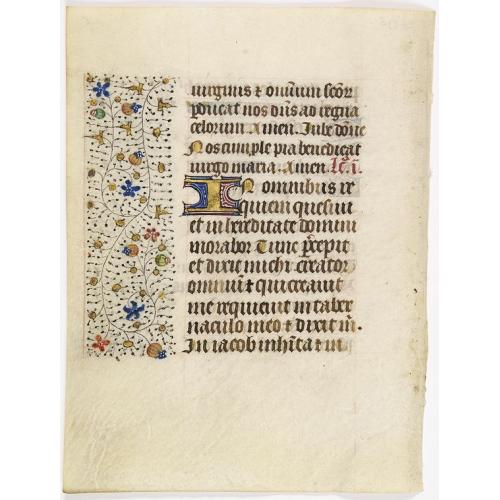 uirginis ⁊ omnium scor
perducat nos dns ad regna
celorum Amen. Iube done
Nos cum prole pia benedicat
uirgo maria. Amen. lc. i.
In omnibus re
quiem quesiui
et in hereditate domini
morabor Tunc precepit
et dixit michi creator
omniu ⁊ qui creauit
me requieuit in taber
naculo meo ⁊ dixit m.
In iacob inhita ⁊ in